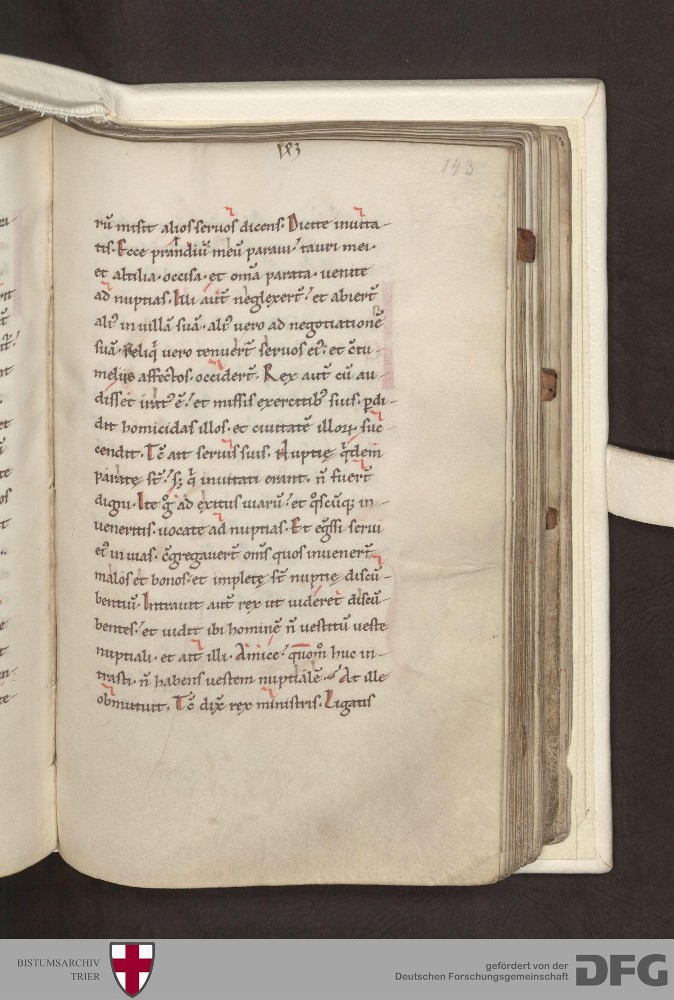 143
rū misit alios seruos dicens. Dicite inuita-
tis. Ecce prandiū meū paraui. tauri mei.
et altilia. occisa. et om̄a parata. uenite
ad nuptias. Illi aut̄ neglexer̄t. et abier̄t
aliꝰ in uillā suā. aliꝰ uero ad negotiationē
suā. Reliq̄ uero tenuer̄t seruos eiꝰ. et c̄tu-
meliis affectos. occider̄t. Rex aut̄ cū au-
disset iratꝰ ē. et missis exercitibꝰ suis. ꝑdi-
dit homicidas illos. et ciuitatē illoꝝ suc
cendit. Tc̄ ait seruis suis. Nuptię q̄dem
paratę st̄. sꝫ q̄ inuitati erant. n̄ fuer̄t
digni. Ite g̊ ad exitus uiarū. et q̊scūqꝫ in-
ueneritis. uocate ad nuptias. Et eḡssi serui
eiꝰ in uias. c̄gregauer̄t om̄s quos inuener̄t
malos et bonos. et impletę st̄ nuptię discū-
bentiū. Intrauit aut̄ rex ut uideret discū-
bentes. et uidit ibi hominē n̄ uestitū ueste
nuptiali. et ait illi. Amice. quom̊ huc in-
trasti. n̄ habens uestem nuptialē. At ille
obmutuit. Tc̄ dix̄ rex ministris. Ligatis
BISTUMSARCHIV
TRIER
gefördert von der
Deutschen Forschungsgemeinschaft
DFG